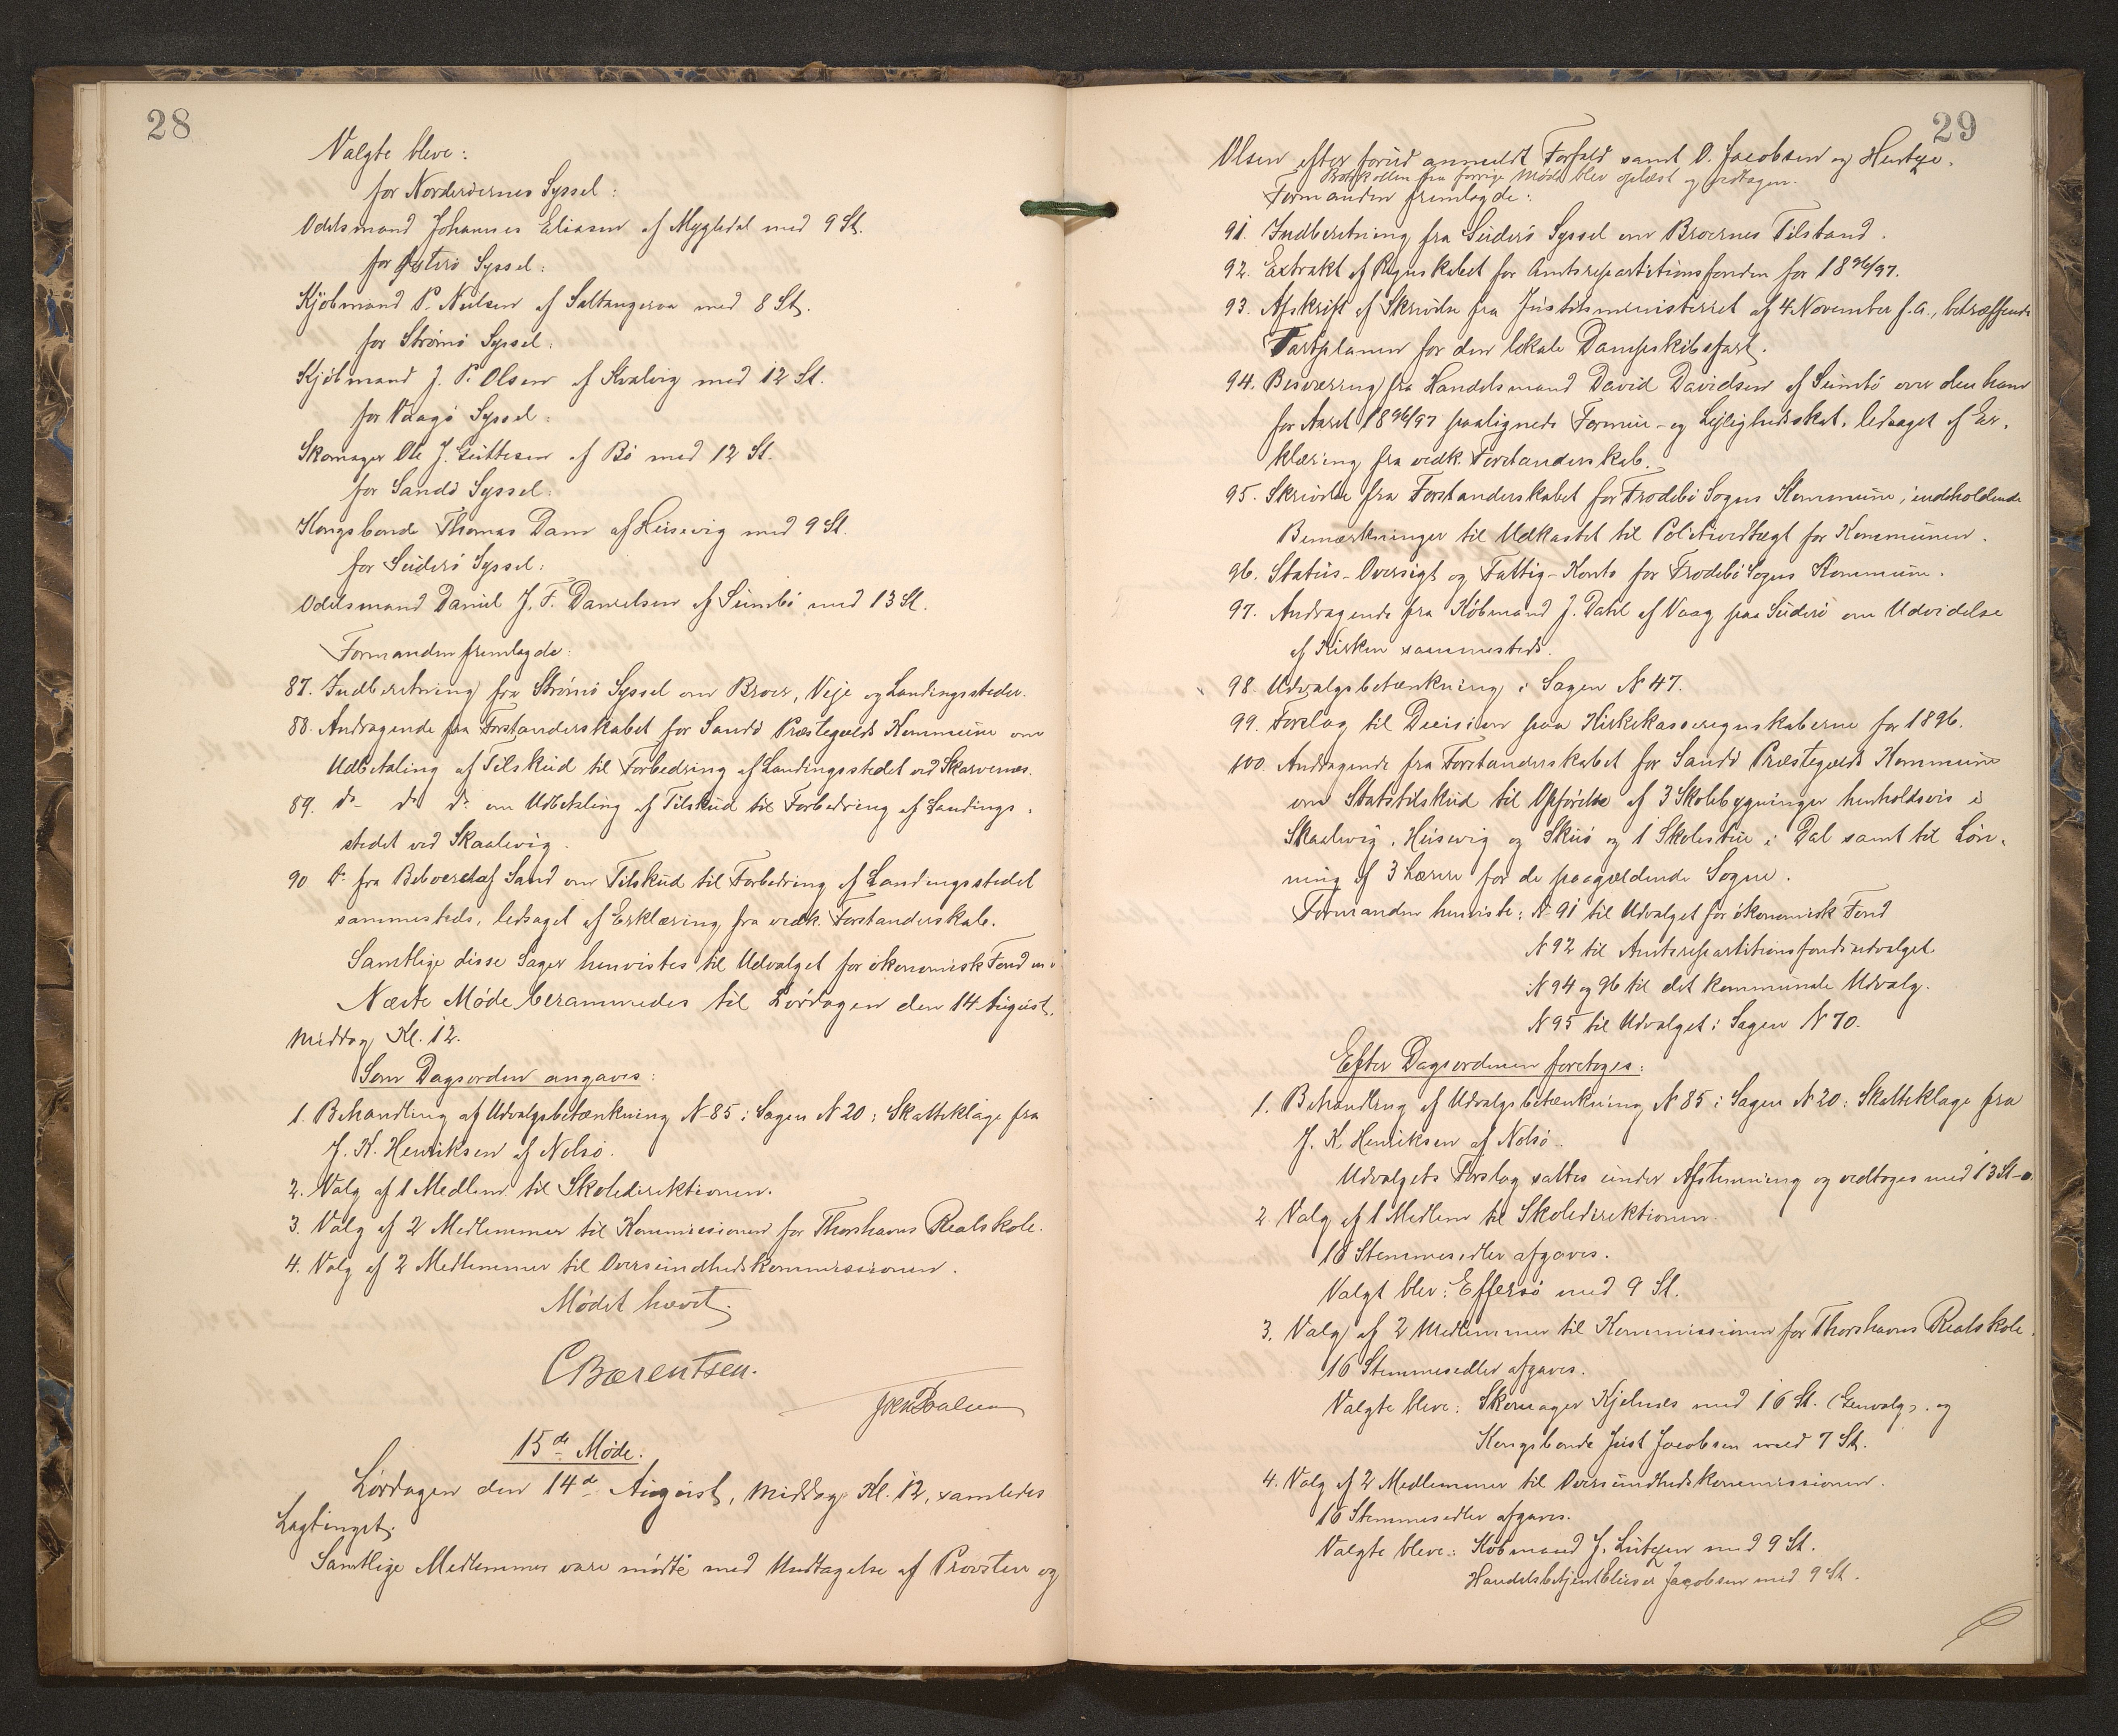 28
Valgte bleve:
for Norderøernes Syssel:
Odelsmand Johannes Eliasen af Mygledal med 9 St.
for Østerø Syssel:
Kjøbmand P. Nielsen af Saltangeraa med 8 St.
for Strømø Syssel:
Kjøbmand J. P. Olsen af Kvalvig med 12 St.
for Vaagø Syssel:
Skomager Ole J. Guttesen af Bø med 12 St.
for Sandø Syssel:
Kongsbonde Thomas Dam af Husevig med 9 St.
for Suderø Syssel:
Odelsmand Daniel J. F. Danielsen af Sumbø med 13 St.
Formanden fremlagde:
87. Indberetning fra Strømø Syssel om Broer, Veje og Landingssteder.
88. Andragende fra Forstanderskabet for Sandø Præstegælds Kommune om
Udbetaling af Tilskud til Forbedring af Landingsstedet ved Skarvenes.
89. do do do om Udbetaling af Tilskud til Forbedring af Landings-
stedet ved Skaalevig.
90 do fra Beboere af Sand om Tilskud til Forbedring af Landingsstedet
sammesteds, ledsaget af Erklæring fra vedk. Forstanderskab.
Samtlige disse Sager henvistes til Udvalget for økonomisk Fond
Næste Møde berammedes til Lørdagen den 14 August,
Middag Kl. 12.
Som Dagsorden angaves:
1. Behandling af Udvalgsbetænkning N 85 i Sagen N 20: Skatteklage fra
J. K. Henriksen af Nolsø.
2. Valg af 1 Medlem til Skoledirektionen.
3. Valg af 2 Medlemmer til Kommissionen for Thorshavns Realskole.
4. Valg af 2 Medlemmer til Oversundhedskommissionen.
Mødet hævet.
C Bærentsen.
Joen Poulsen
15de Møde.
Lørdagen den 14de August, Middag Kl. 12, samledes
Lagtinget.
Samtlige Medlemmer vare mødte med Undtagelse af Provsten og
29
Olsen efter forud anmeldt Forfald samt O. Jacobsen og Hentze.
Protokollen fra forrige Møde blev oplæst og vedtagen.
Formanden fremlagde:
91. Indberetning fra Suderø Syssel om Broernes Tilstand.
92. Extrakt af Regnskabet for Amtsrepartitionsfonden for 1896/97.
93. Afskrift af Skrivelse fra Justitsministeriet af 4 November f. A., betræffende
Fartplanen for den lokale Dampskibsfart.
94. Besværing fra Handelsmand David Davidsen af Sumbø over den ham
for Aaret 1896/97 paalignede Formue- og Lejlighedsskat, ledsaget af Er-
klæring fra vedk. Forstanderskab.
95. Skrivelse fra Forstanderskabet for Frodebø Sogns Kommune, indeholdende
Bemærkninger til Udkastet til Politivedtægt for Kommunen.
96. Status-Oversigt og Fattig-Konto for Frodebø Sogns Kommune.
97. Andragende fra Købmand J. Dahl af Vaag paa Suderø om Udvidelse
af Kirken sammesteds.
98. Udvalgsbetænkning i Sagen N 47.
99. Forslag til Decision paa Kirkekasseregnskaberne for 1896.
100. Andragende fra Forstanderskabet for Sandø Præstegælds Kommune
om Statstilskud til Opførelse af 3 Skolebygninger henholdsvis i
Skaalevig, Husevig og Skuø og 1 Skolestue i Dal samt til Løn-
ning af 3 Lærere for de paagældende Sogne.
Formanden henviste: N 91 til Udvalget for økonomisk Fond
N 92 til Amtsrepartitionsfondsudvalget
N 94 og 96 til det kommunale Udvalg.
N 95 til Udvalget i Sagen N 70.
Efter Dagsordenen foretoges:
1. Behandling af Udvalgsbetænkning N 85 i Sagen N 20: Skatteklage fra
J. K. Henriksen af Nolsø.
Udvalgets Forslag sattes under Afstemning og vedtoges med 13 St.
2. Valg af 1 Medlem til Skoledirektionen.
16 Stemmesedler afgaves.
Valgt blev: Effersø med 9 St.
3. Valg af 2 Medlemmer til Kommissionen for Thorshavns Realskole.
16 Stemmesedler afgaves.
Valgte bleve: Skomager Kjelnes med 16 St. (Genvalg). og
Kongsbonde Just Jacobsen med 7 St.
4. Valg af 2 Medlemmer til Oversundhedskommissionen.
16 Stemmesedler afgaves.
Valgte bleve: Købmand J. Lützen med 9 St.
Handelsbetjent Jacobsen med 9 St.